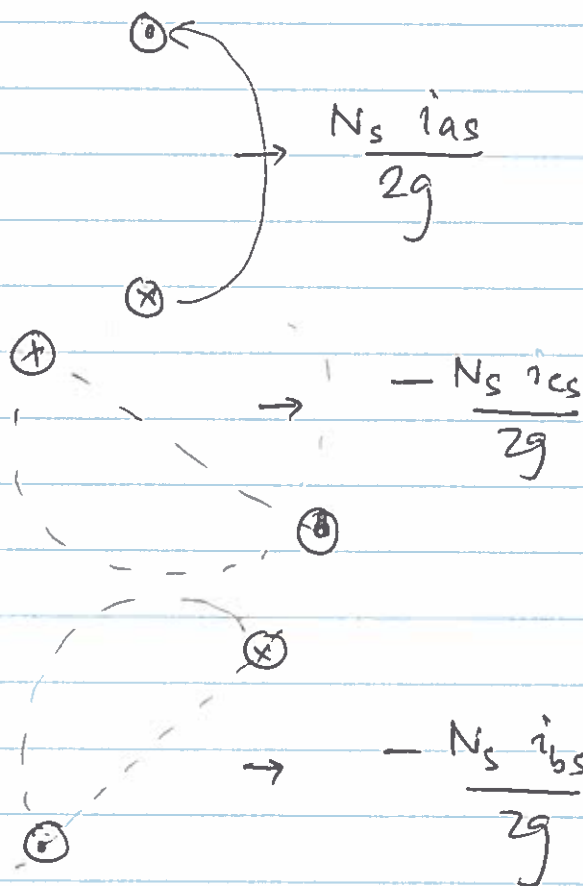 → N_s i_as / 2g
→ − N_s i_cs / 2g
→ − N_s i_bs / 2g